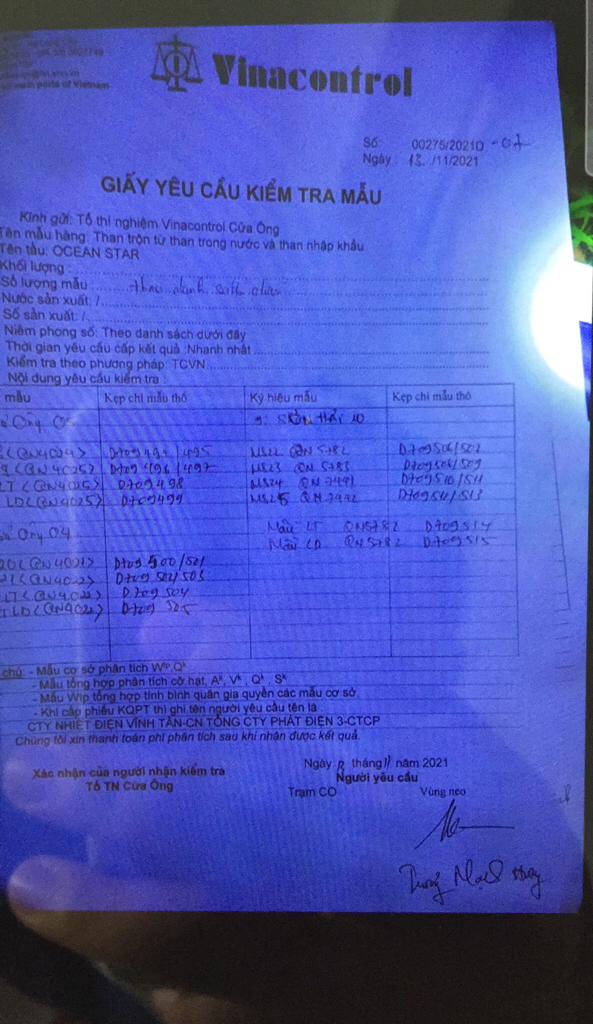 Vinacontrol
Số 00275/2021Ò -07
Ngày : 13 /11/2021
GIẤY YÊU CẦU KIỂM TRA MẪU
Kính gửi: Tổ thí nghiệm Vinacontrol Cửa Ông
Tên mẫu hàng: Than trộn từ than trong nước và than nhập khẩu
Tên tàu: OCEAN STAR
Khối lượng :
Số lượng mẫu :
Nước sản xuất: /
Số sản xuất: /
Niêm phong số: Theo danh sách dưới đây
Thời gian yêu cầu cấp kết quả :Nhanh nhất
Kiểm tra theo phương pháp: TCVN
Nội dung yêu cầu kiểm tra :
mẫu Kẹp chì mẫu thô Ký hiệu mẫu Kẹp chì mẫu thô
(QN4024) /495 MS22 QN 5782 D709506/507
(QN4025) D709496/497 MS23 QN 5783 D709508/509
LT (QN4025) D709498 MS24 QN 7491 D709510/511
LD (QN4025) D709499 MS25 QN 7492
Ông 04 Mẫu LT QN5782 D709514
Mẫu LD QN5782 D709515
(QN4021) D709500/501
(QN4022) D709502/503
LT (QN4022) D709504
LD (QN4022) D709505
chú: - Mẫu cơ sở phân tích Wtp,Qk
- Mẫu tổng hợp phân tích cỡ hạt, Ak, Vk , Qk , Sk
- Mẫu Wtp tổng hợp tính bình quân gia quyền các mẫu cơ sở
- Khi cấp phiếu KQPT thì ghi tên người yêu cầu tên là :
CTY NHIỆT ĐIỆN VĨNH TÂN-CN TỔNG CTY PHÁT ĐIỆN 3-CTCP
Chúng tôi xin thanh toán phí phân tích sau khi nhận được kết quả.
Ngày 13 tháng 11 năm 2021
Xác nhận của người nhận kiểm tra Người yêu cầu
Tổ TN Cửa Ông Trạm CO Vùng neo